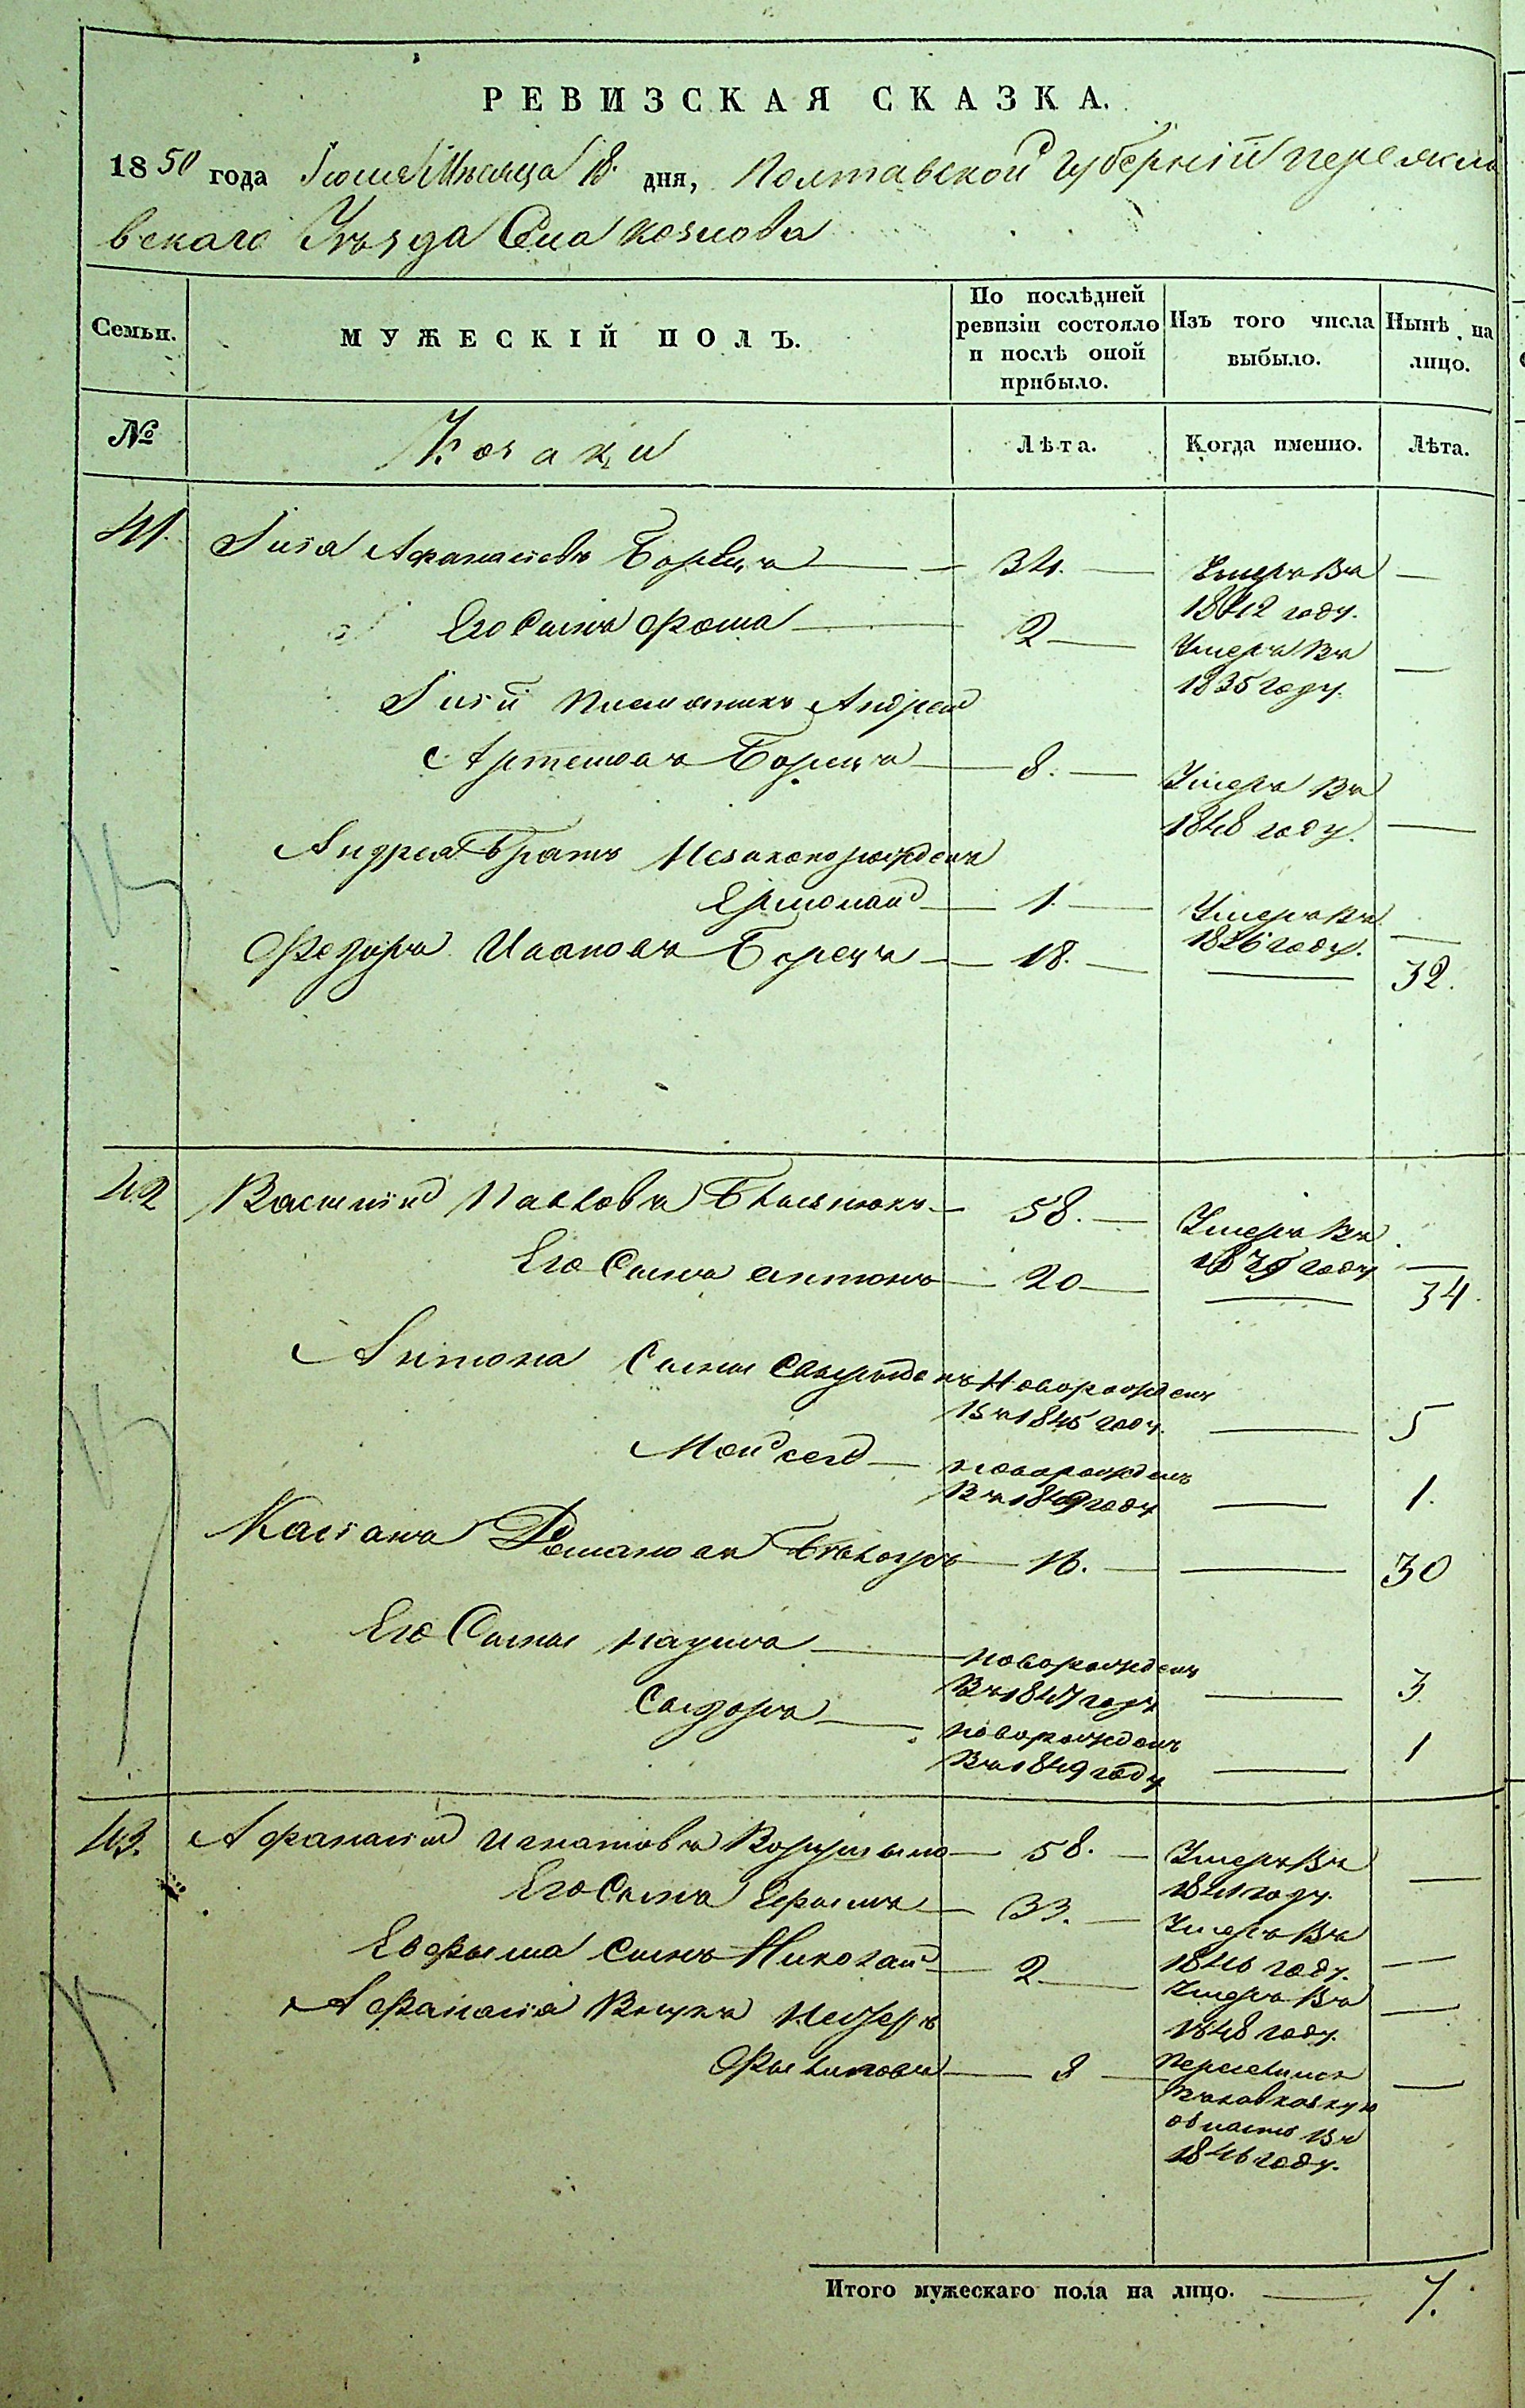 РЕВИЗСКАЯ СКАЗКА.
1850 года Іюня Мѣсяца 18. дня, Полтавской Губерніи переясла
вскаго Уѣзда Села козлова
Семьи.
МУЖЕСКІЙ ПОЛЪ.
По послѣдней
ревизіи состояло
и послѣ оной
прибыло.
Изъ того числа
выбыло.
Нынѣ на
лицо.
№
Козаки
Лѣта.
Когда именно.
Лѣта.
41.
Афанасіевъ Борецъ 34. Умеръ въ
1842 году.
Его Сынъ фома 2 Умеръ въ
1835 году.
племянникъ Андрей
Артемовъ Борецъ 8. Умеръ въ
1848 году.
Андрея Братъ Незаконорожденъ
Ермолай 1. Умеръ въ
1836 году.
Федоръ Ивановъ Борецъ 18. 32.
42 Василій Павловъ 58. Умеръ въ
году
Его Сынъ антонъ 20 34.
Антона Сыны Новорожденъ
въ 1845 году. 5
Мойсей новорожденъ
въ 1849 году 1.
Касіянъ Романовъ 16. 30
Его Сыны наумъ новорожденъ
въ 1847 году 3
Сидоръ новорожденъ
въ 1849 году 1
43. Афанасій игнатовъ 58. Умеръ въ
1841 году.
Его Сынъ 33. Умеръ въ
1846 году.
Сынъ Николай 2 Умеръ въ
1848 году.
Афанасія Внукъ
Филиповъ 8 переселился
въ кавказкую
область въ
1846 году.
Итого мужескаго пола на лицо. 7.